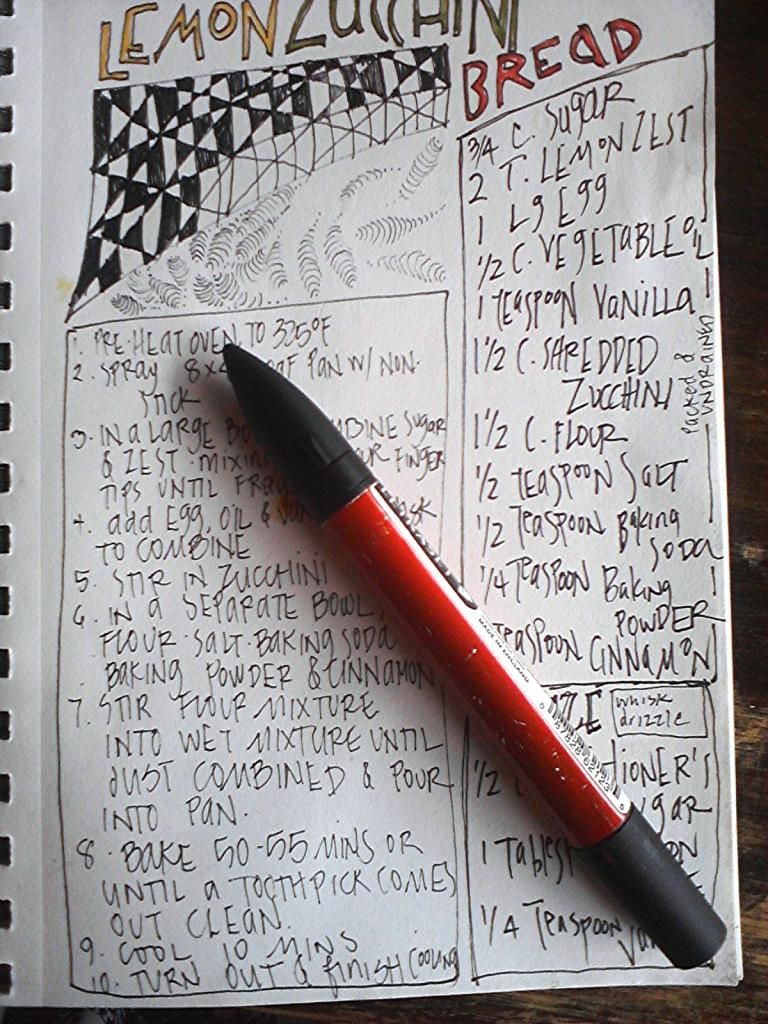 LEMON ZUCCHINI
BREAD
3/4 C. SUGAR
2 T. LEMON ZEST
1 Lg Egg
1/2 C. VEGETABLE OIL
1 TEASPOON VANILLA
1 1/2 C. SHREDDED
ZUCCHINI
packed & UNDRAINED
1 1/2 C. FLOUR
1/2 TEASPOON SALT
1/2 TEASPOON BAKING
SODA
1/4 TEASPOON BAKING
POWDER
TEASPOON CINNAMON
whisk
drizzle
1/2
SUGAR
1
1/4 TEASPOON
1. PRE-HEAT OVEN TO 325°F
2. SPRAY PAN W/ NON-
STICK
3. IN A LARGE SUGAR
& ZEST. MIXING FINGER
TIPS UNTIL
4. add EGG, OIL &
TO COMBINE
5. STIR IN ZUCCHINI
6. IN A SEPARATE BOWL,
FLOUR. SALT. BAKING SODA
BAKING POWDER & CINNAMON
7. STIR FLOUR MIXTURE
INTO WET MIXTURE UNTIL
JUST COMBINED & POUR
INTO PAN.
8. BAKE 50-55 MINS OR
UNTIL A TOOTHPICK COMES
OUT CLEAN.
9. COOL 10 MINS
10. TURN OUT & FINISH COOLING
MADE IN ENGLAND